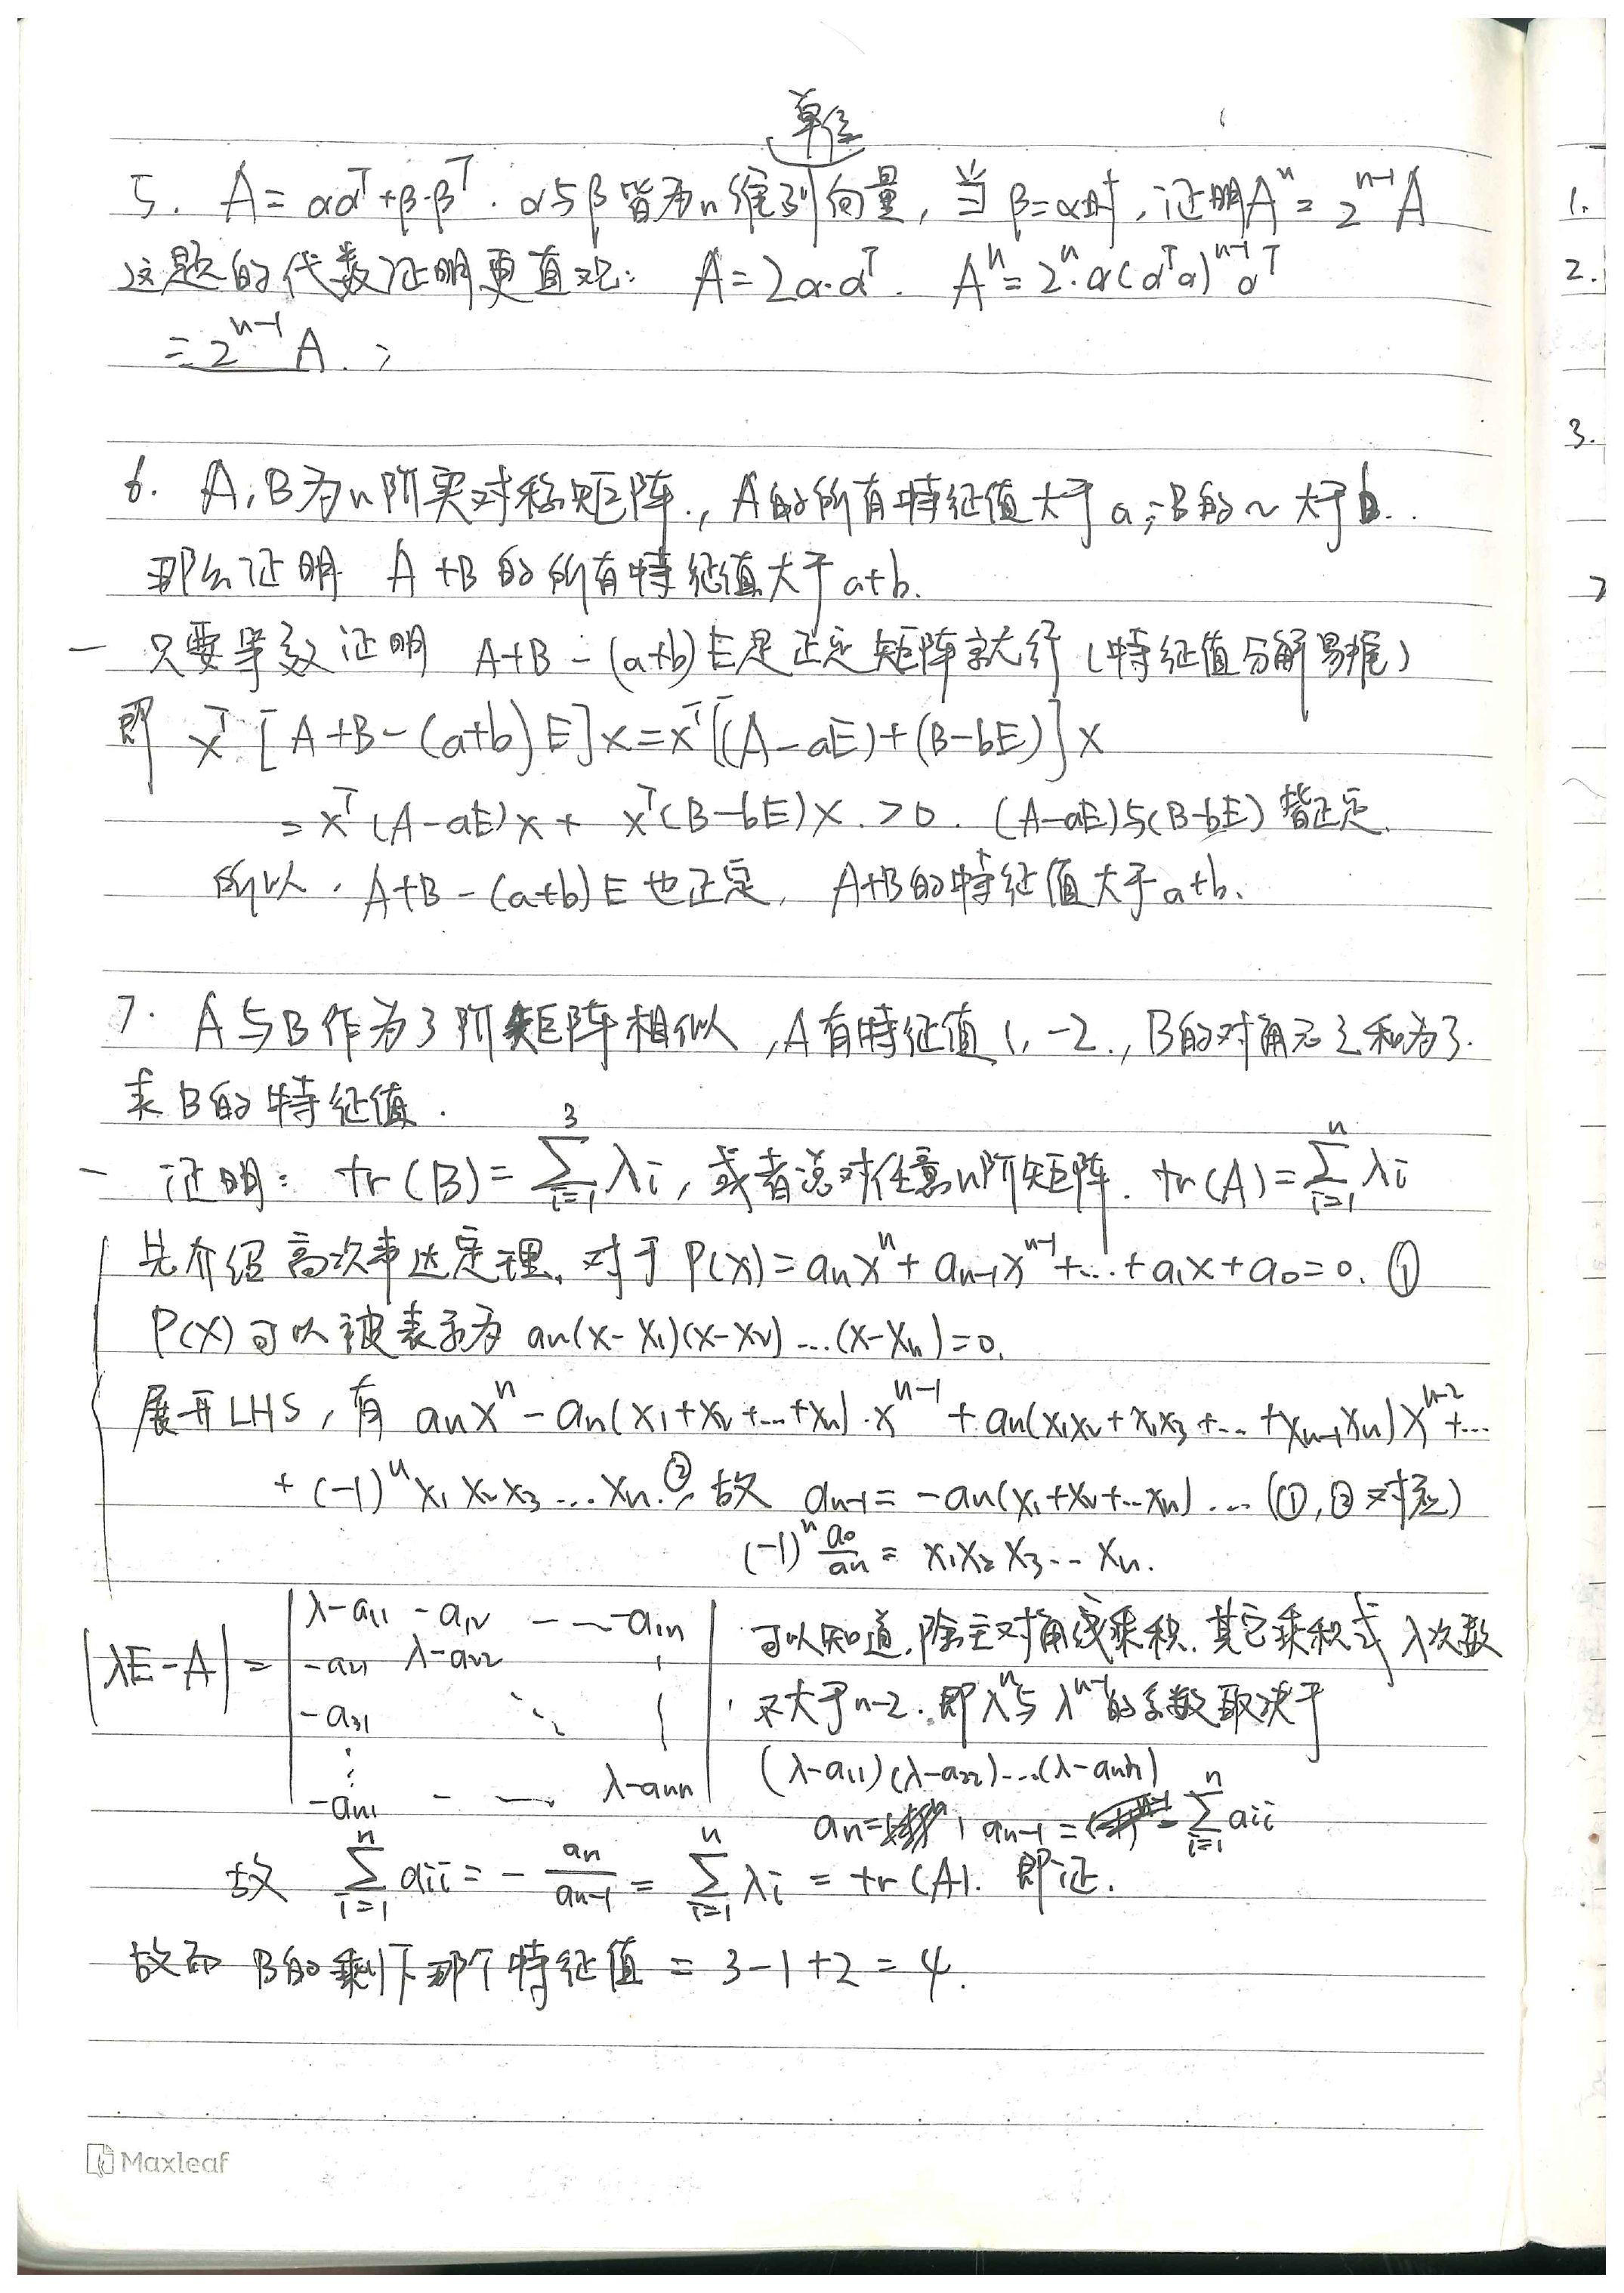 单位
5. A = αα^T + β·β^T. α与β皆为n维列向量, 当β=α时, 证明A^n = 2^{n-1}A
这题的代数证明更直观: A = 2α·α^T. A^n = 2^n·α(α^Tα)^{n-1}α^T
= 2^{n-1}A.
6. A, B为n阶实对称矩阵., A的所有特征值大于a, B的~大于b..
那么证明 A+B的所有特征值大于a+b.
— 只要等效证明 A+B-(a+b)E是正定矩阵就行 (特征值分解易推)
即 x^T[A+B-(a+b)E]x = x^T[(A-aE)+(B-bE)]x
= x^T(A-aE)x + x^T(B-bE)x. >0. (A-aE)与(B-bE)皆正定.
所以, A+B-(a+b)E也正定, A+B的特征值大于a+b.
7. A与B作为3阶矩阵相似, A有特征值1, -2., B的对角元之和为3.
求B的特征值.
— 证明: tr(B) = \sum_{i=1}^{3} λi, 或者说对任意n阶矩阵. tr(A) = \sum_{i=1}^{n} λi
先介绍高次韦达定理. 对于 P(x) = a_n x^n + a_{n-1}x^{n-1} + ... + a_1x + a_0 = 0. ①
P(x)可以被表示为 a_n(x-x_1)(x-x_2)...(x-x_n) = 0.
展开LHS, 有 a_n x^n - a_n(x_1+x_2+...+x_n)·x^{n-1} + a_n(x_1x_2+x_1x_3+...+x_{n-1}x_n)x^{n-2}+...
+ (-1)^n x_1 x_2 x_3 ... x_n. ② 故 a_{n-1} = -a_n(x_1+x_2+...x_n) ... (①,②对应)
(-1)^n \frac{a_0}{a_n} = x_1 x_2 x_3 ... x_n.
|λE-A| = | λ-a_{11} -a_{12} — … -a_{1n} | 可以知道, 除主对角线乘积. 其它乘积式λ次数
-a_{21} λ-a_{22} 不大于n-2. 即λ^n与λ^{n-1}的系数取决于
-a_{31} ⋱ (λ-a_{11})(λ-a_{22})...(λ-a_{nn})
⋮
-a_{n1} - - — . λ-a_{nn} a_n = 1, a_{n-1} = -\sum_{i=1}^{n} a_{ii}
故 \sum_{i=1}^{n} a_{ii} = -\frac{a_n}{a_{n-1}} = \sum_{i=1}^{n} λi = tr(A). 即证.
故而 B的剩下那个特征值 = 3-1+2 = 4.
Maxleaf
1.
2.
3.